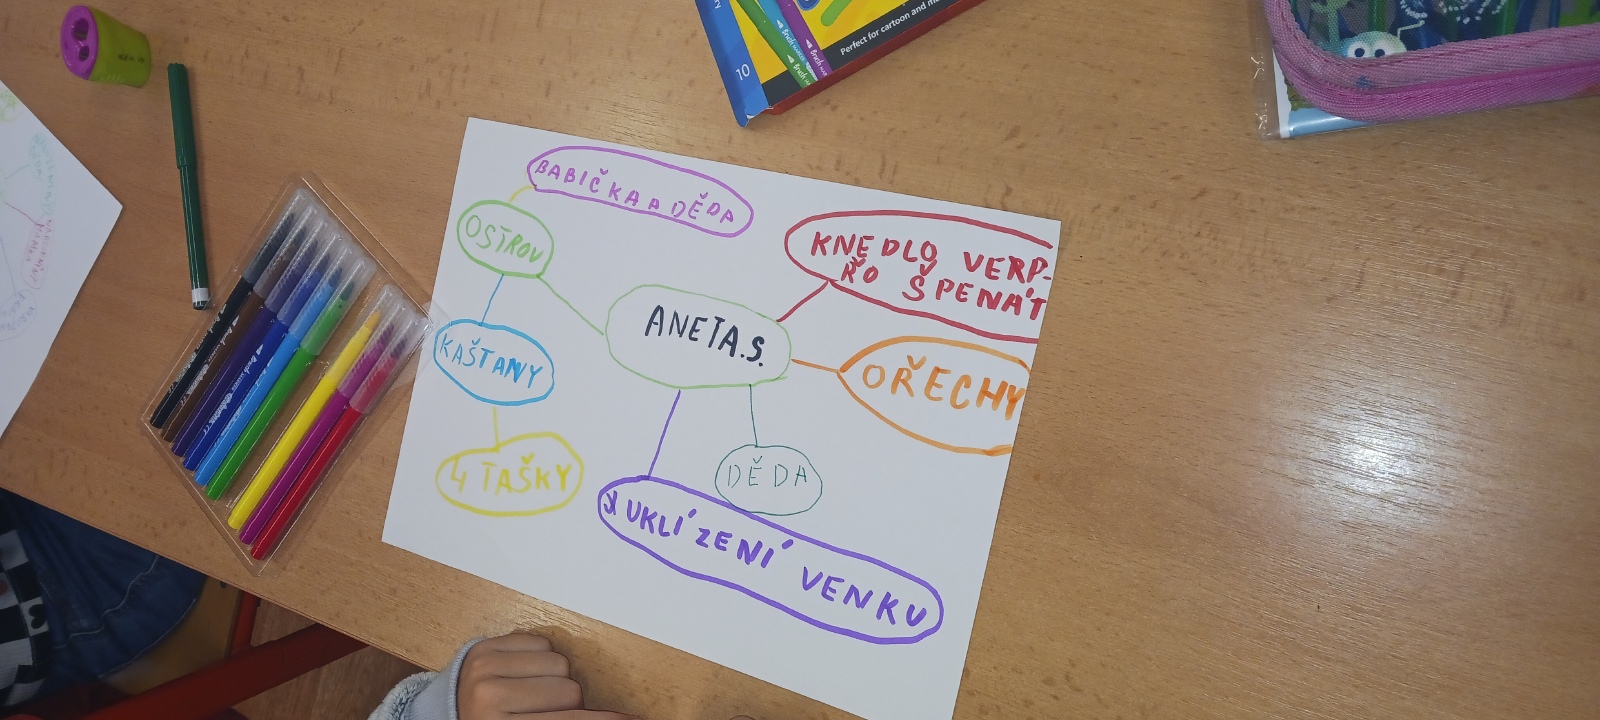 10
Perfect for cartoon and
BABIČKA A DĚDA
OSTROV
KNEDLO VERP-
ŘO ŠPENÁT
ANETA.S.
KAŠTANY
OŘECHY
4 TAŠKY
DĚDA
UKLÍZENÍ VENKU